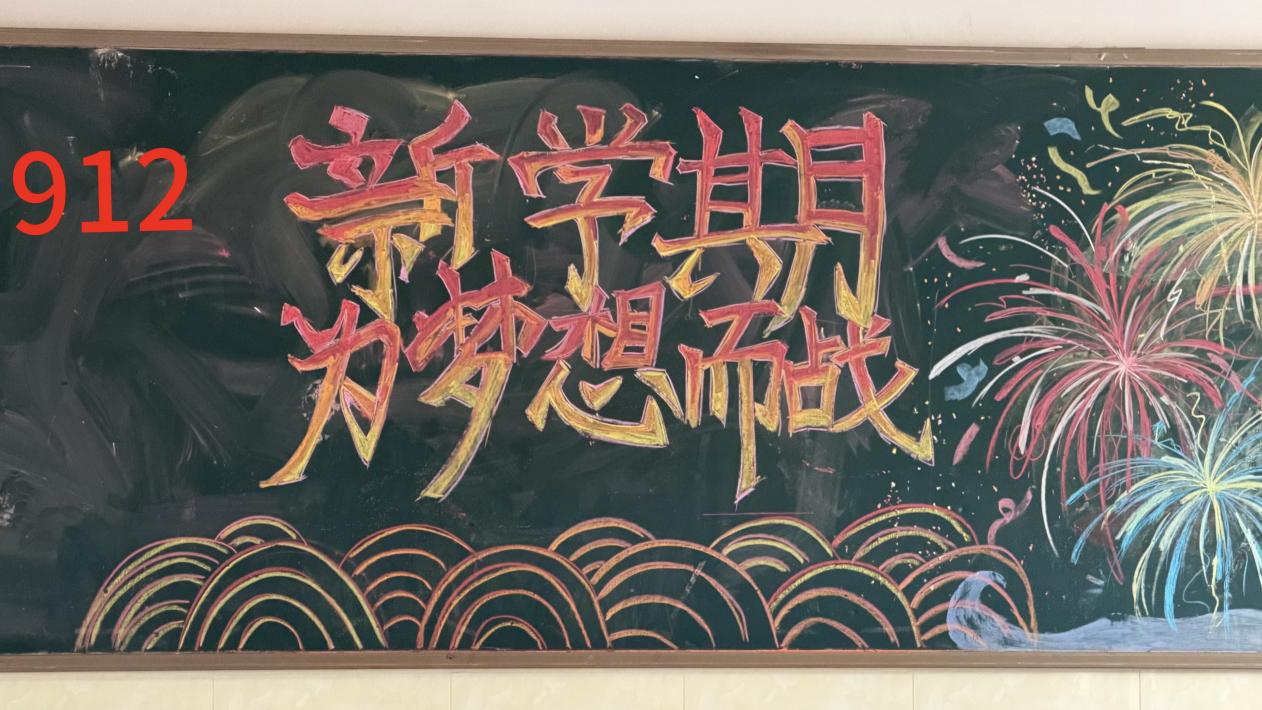 912
新学期
为梦想而战